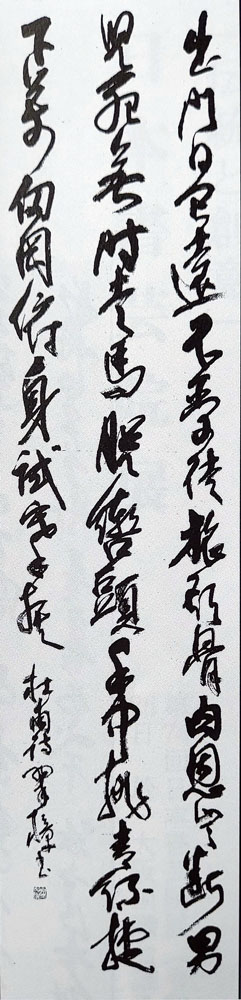 出門日已遠不受徒旅欺骨肉恩豈斷男
兒死無時走馬脫轡頭手中挑青絲捷
下萬仞岡俯身試搴旗 杜甫詩 書